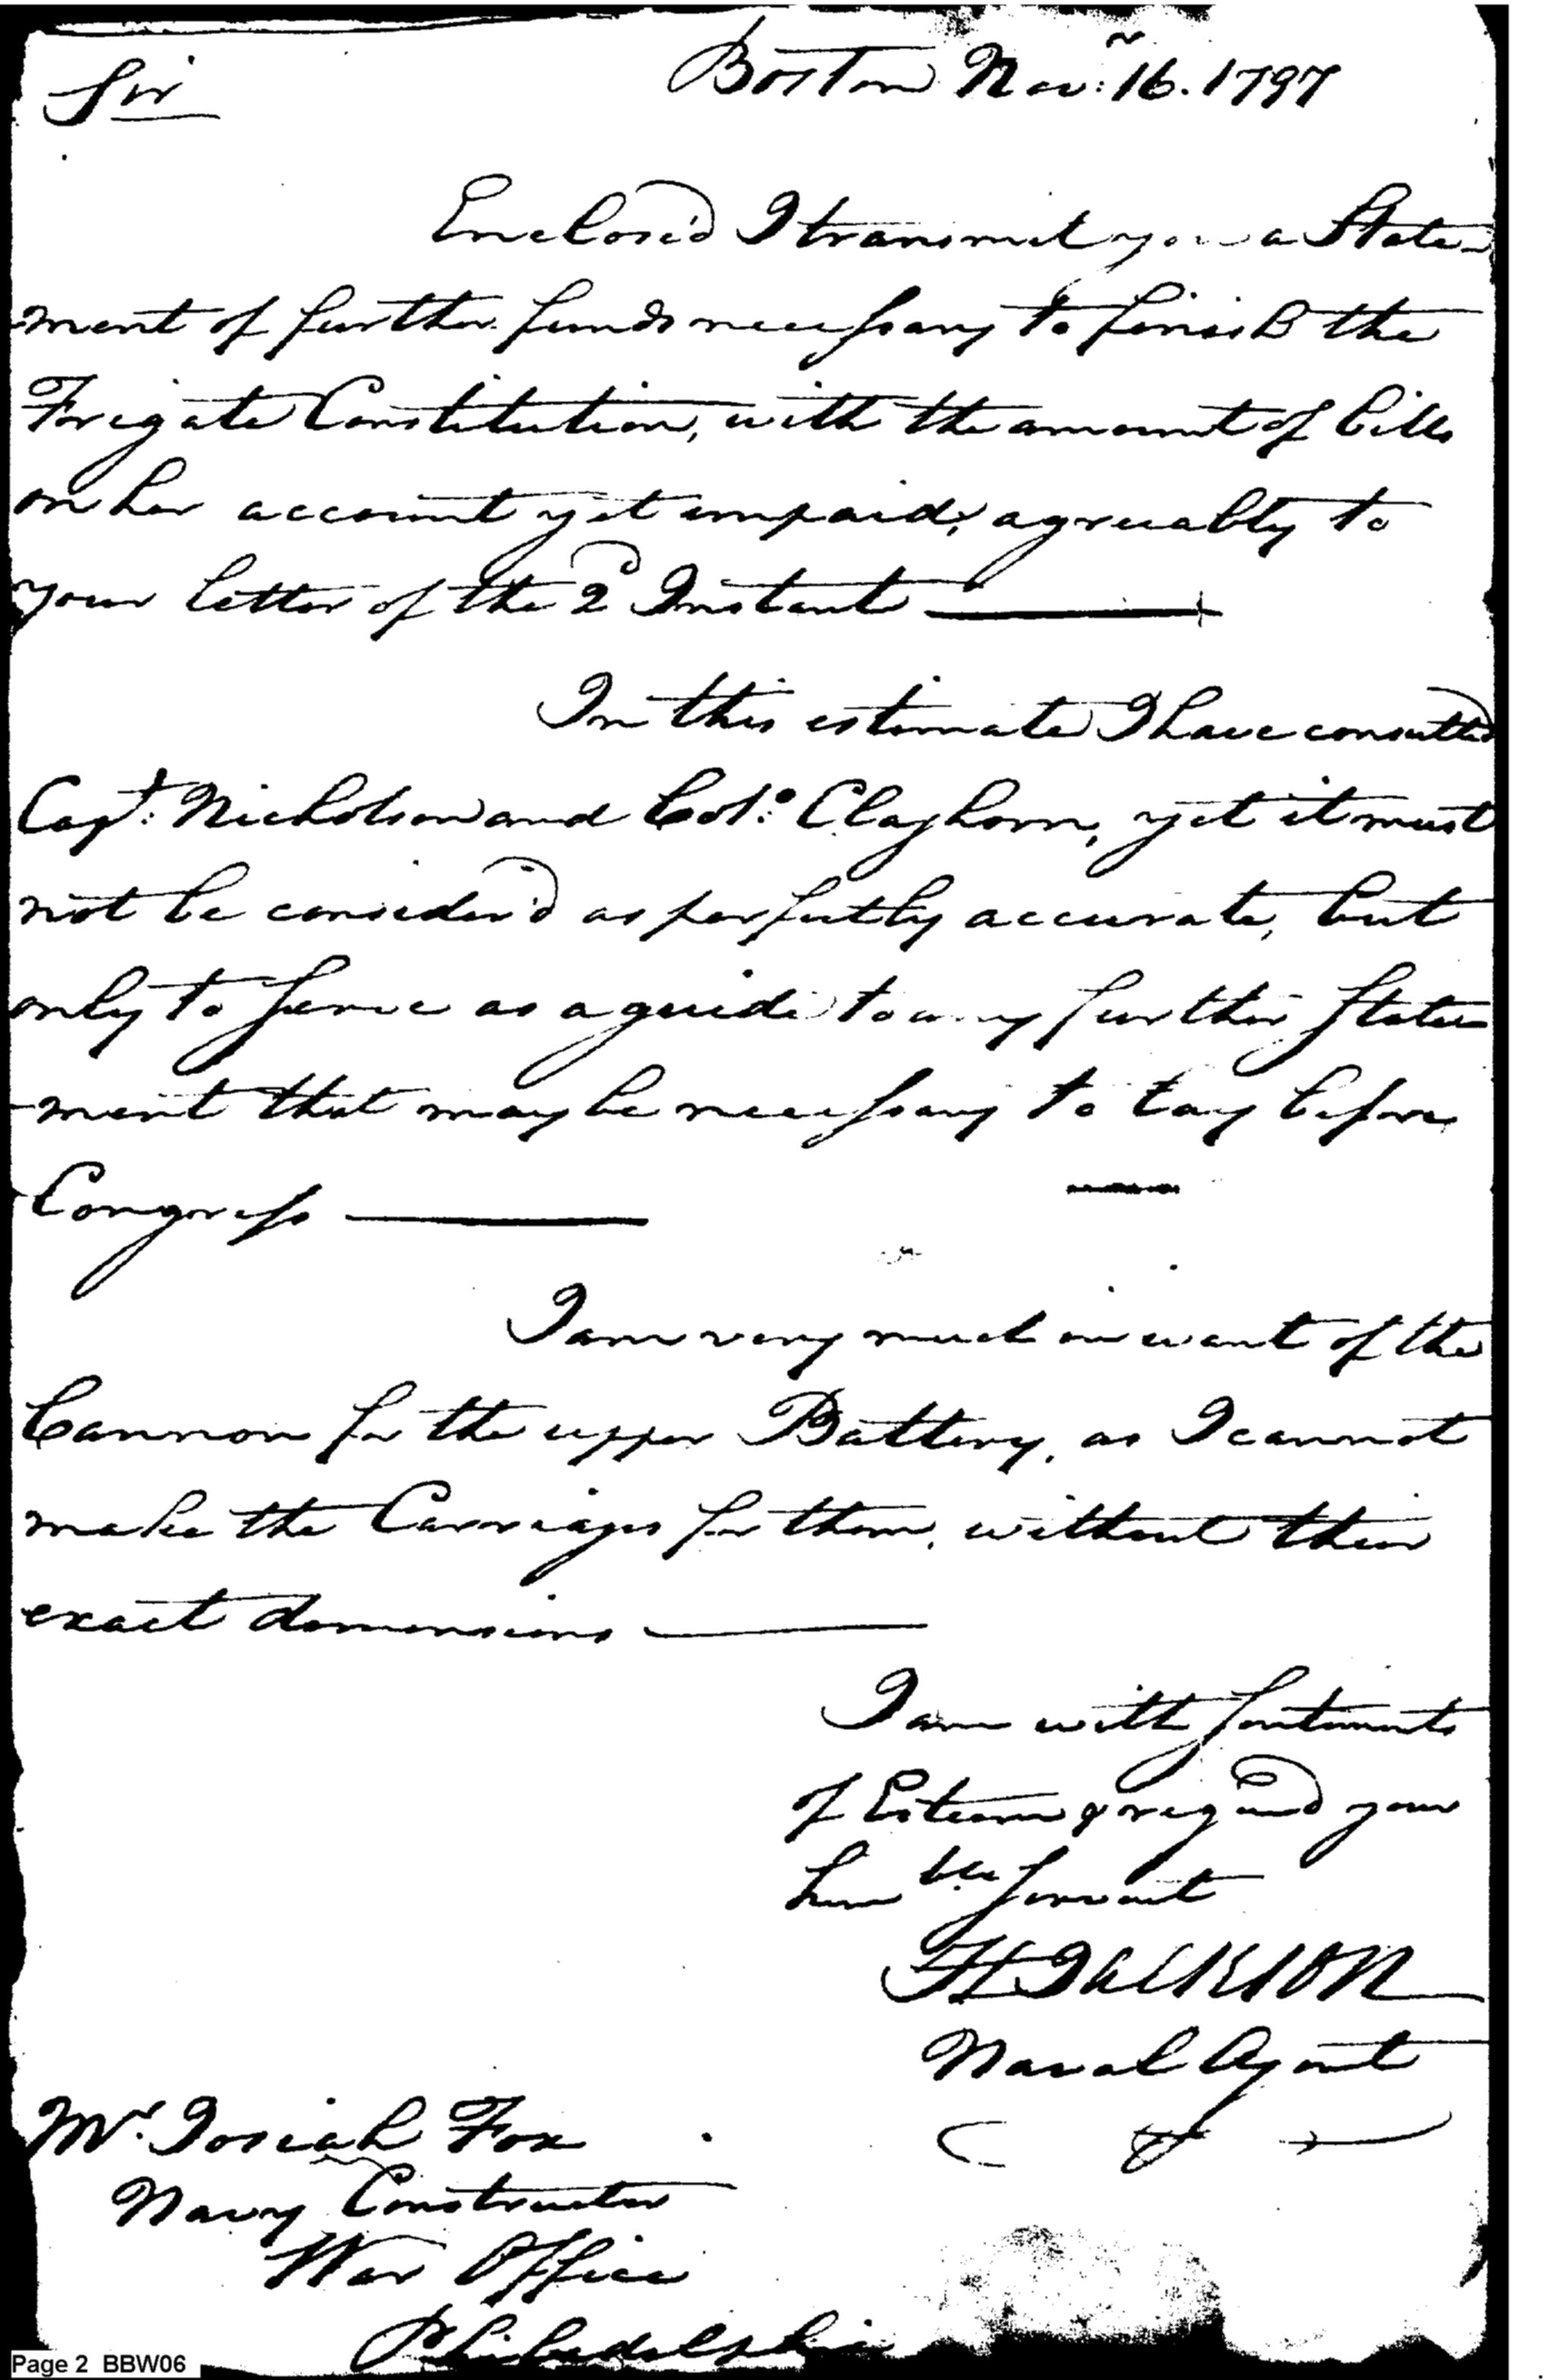 Boston Nov: 16. 1797
Sir
Enclos'd I transmit you a State-
-ment of further funds necessary to finish the
Frigate Constitution, with the amount of bills
on her account yet unpaid, agreeably to
your letter of the 2d Instant
In this estimate I have consulted
Capt: Nicholson and Col:o Claghorn, yet it must
not be consider'd as perfectly accurate, but
only to serve as a guide to any further State
-ment that may be necessary to lay before
Congress
I am very much in want of the
Cannon for the upper Battery, as I cannot
make the Carriages for them, without their
exact demensions
I am with sentiments
of Esteem & regard your
humble servant
H Jackson
Naval Agent
Mr. Josiah Fox
Navy Constructor
War Office
Philadelphia
Page 2 BBW06